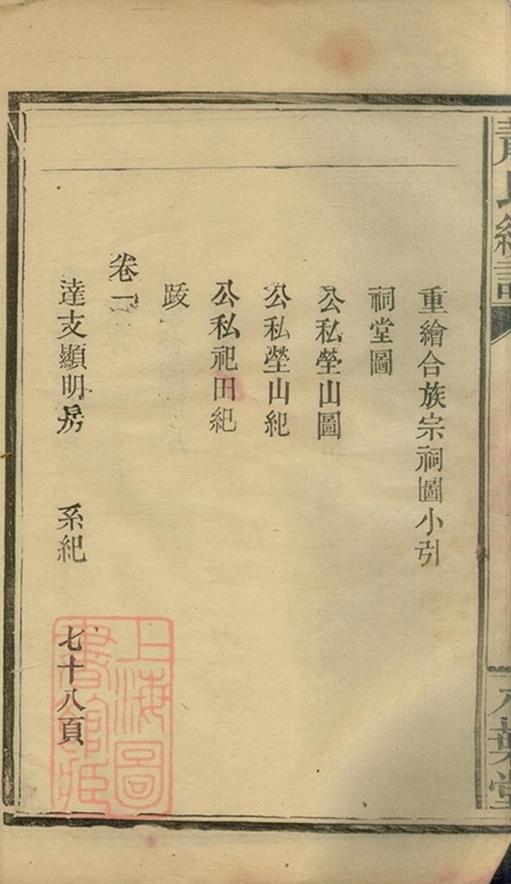 重繪合族宗祠圖小引
祠堂圖
公私塋山圖
公私塋山紀
公私祀田紀
跋
卷一
達支顯明房 系紀 七十八頁
上海圖
書館藏
葉堂